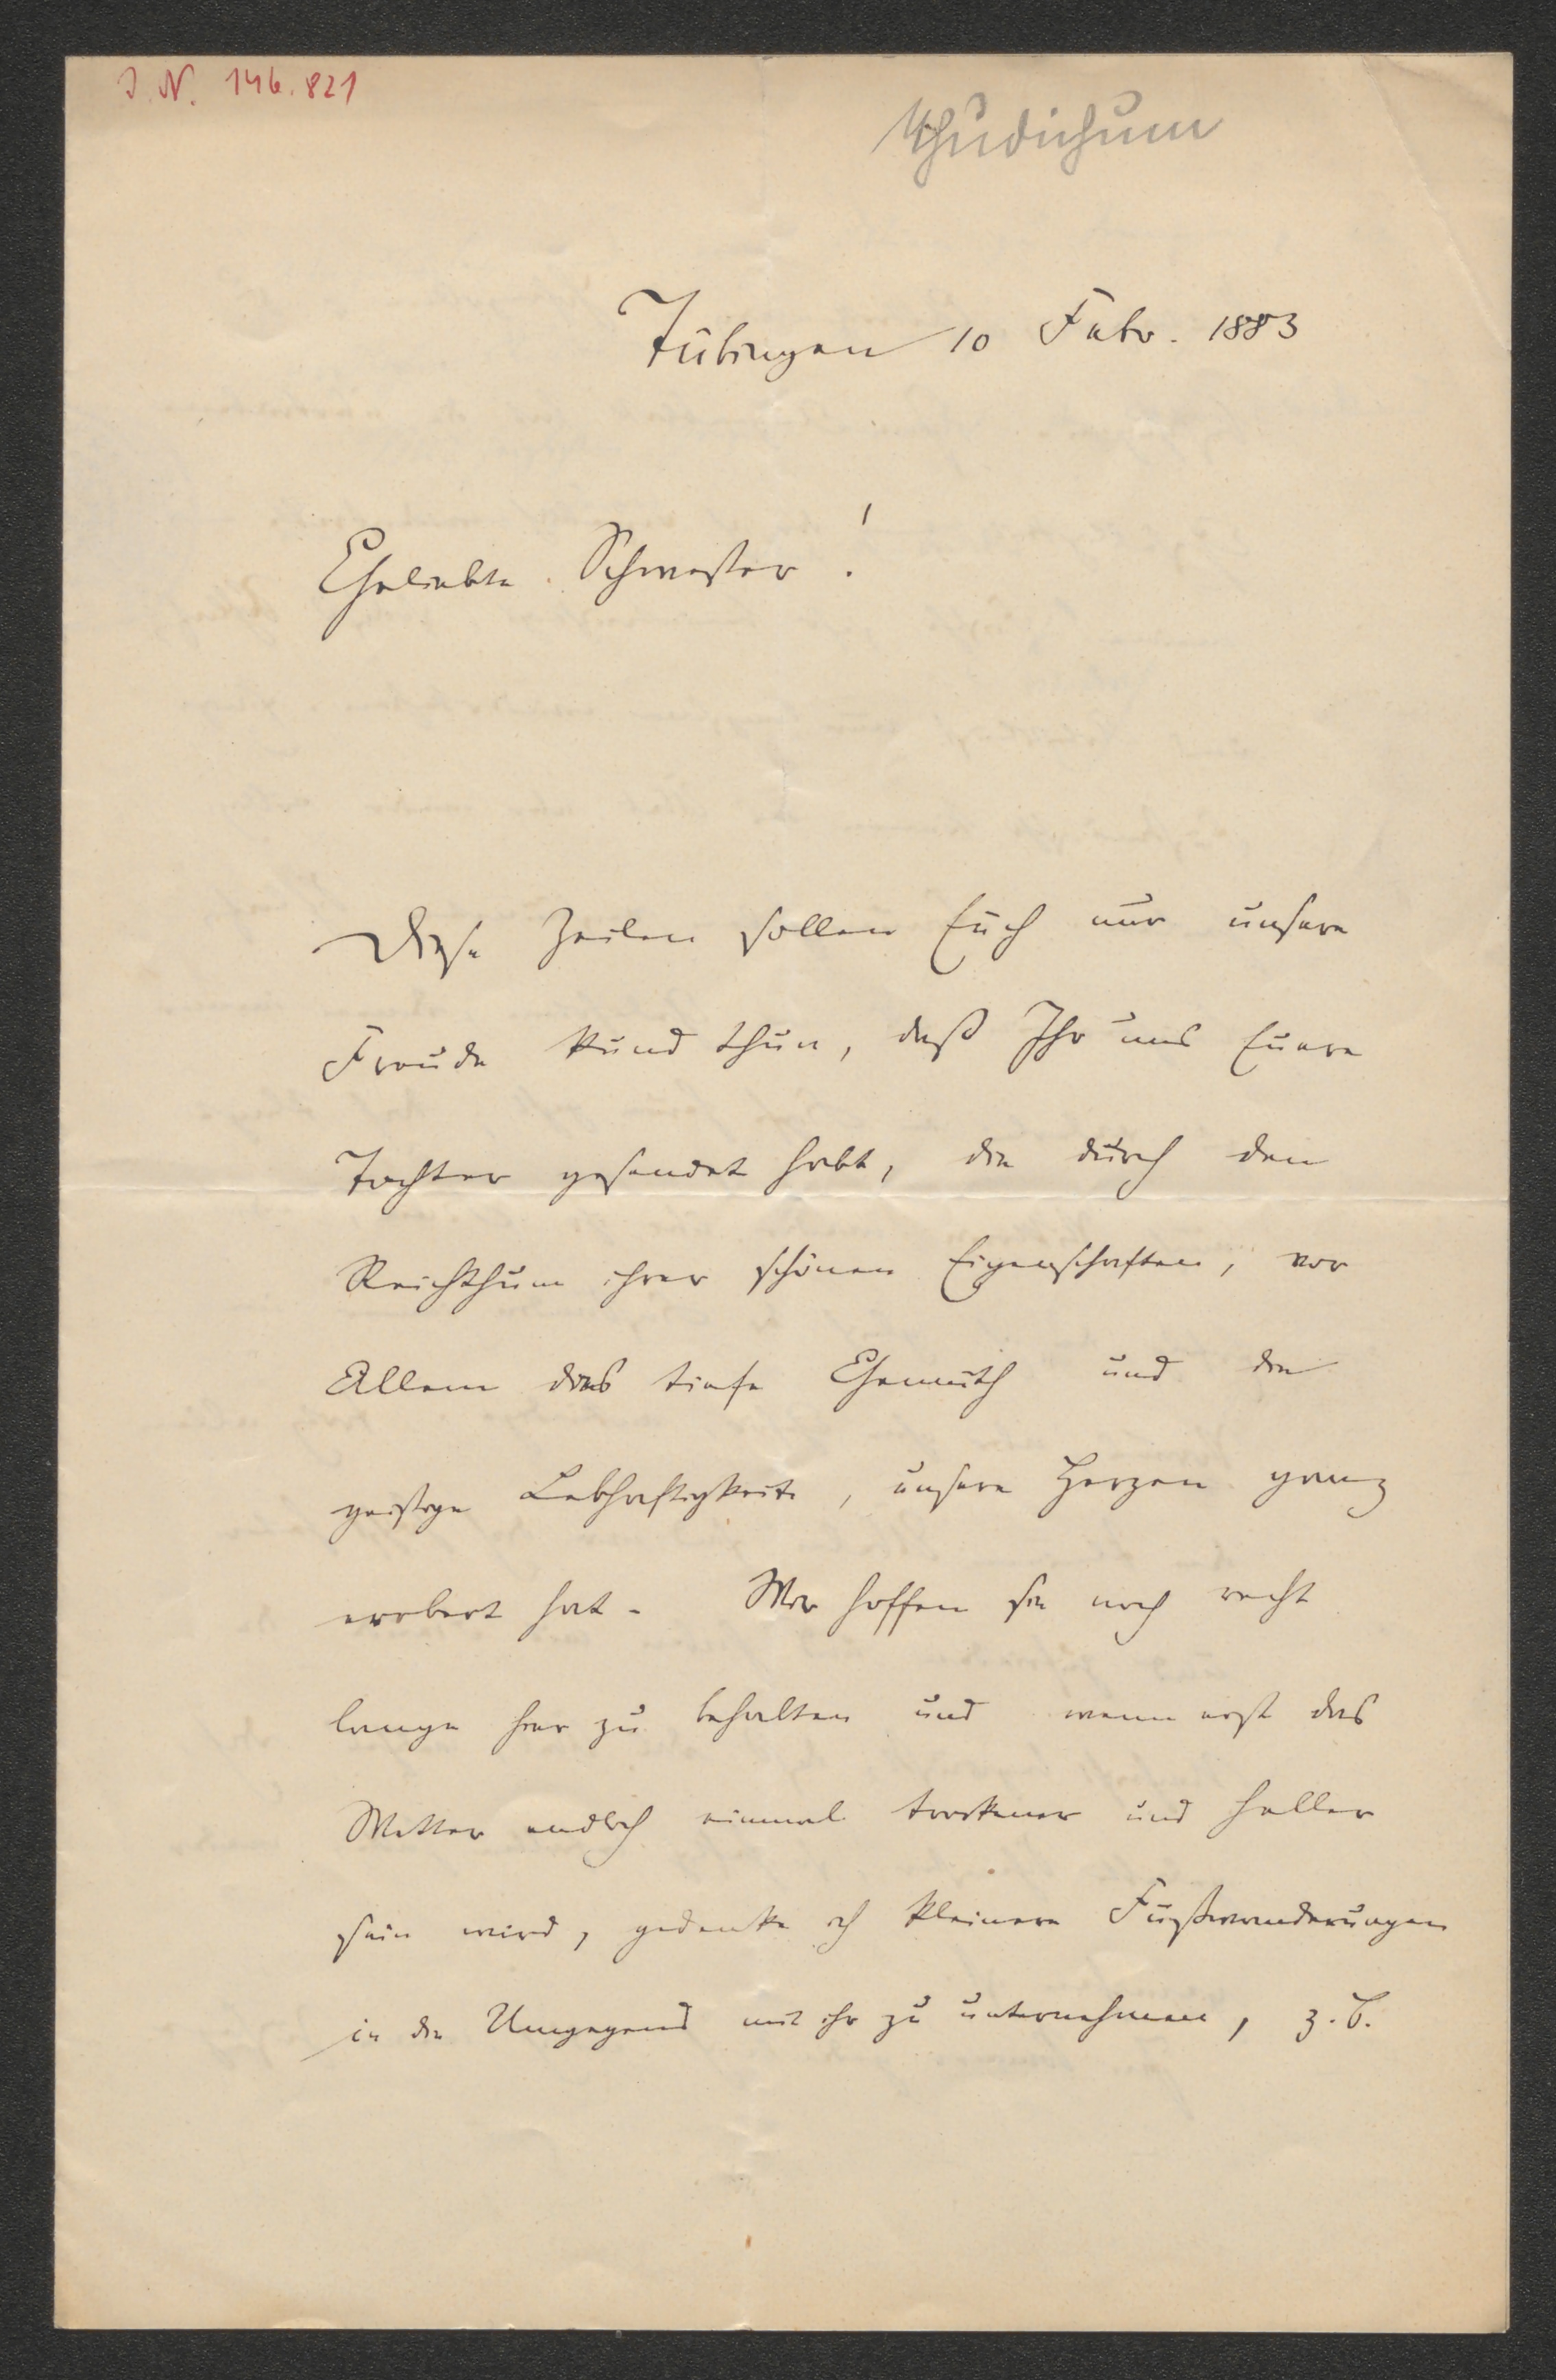 I. N. 146.821
Thudichum
Tübingen 10 Febr. 1883
Geliebte Schwester!
Diese Zeilen sollen Euch nur unsere
Freude kund thun, daß Ihr uns Euere
Tochter gesendet habt, die durch den
Reichthum ihrer schönen Eigenschaften, vor
Allem das tiefe Gemüth und die
geistige Lebhaftigkeit, unsere Herzen ganz
erobert hat. Wir hoffen sie noch recht
lange hier zu behalten und wenn erst das
Wetter endlich einmal trockener und heller
sein wird, gedenke ich kleinere Fußwanderungen
in die Umgegend mit ihr zu unternehmen, z. B.